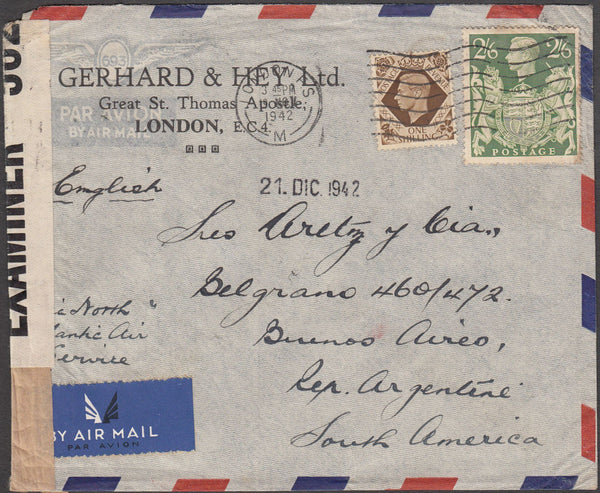 EXAMINER
693
PAR AVION
BY AIR MAIL
GERHARD & HEY, Ltd.
Great St. Thomas Apostle,
LONDON, E.C.4.
LONDON
3 45 PM
1942
ONE
SHILLING
2/6 2/6
POSTAGE
English
21. DIC. 1942
Sres Aretz y Cia.,
Belgrano 460/472.
Buenos Aires,
Rep. Argentine
South America
North "
lantic Air
Service
BY AIR MAIL
PAR AVION